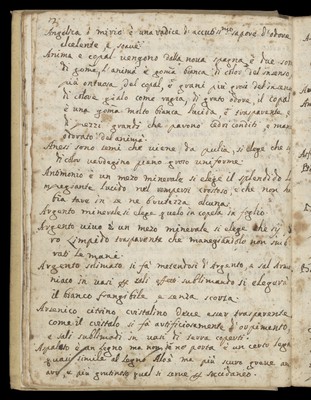 Angelica o mirio è una radice d'acutiss.mo sapore d'odore
elalente, e soave
Anima e copal vengono dalla nova spagna, e due son
di goma, l'anima è goma bianca di color del inanso,
più ontuosa del copal, e grani più grosi del inanso
di colore gialo come ragia, di grato odore, il copal
è una goma molto bianca lucida, e trasparente, e
pezzi grandi che pareno cedri conditi, e man
odorato del anima
Anesi sono semi che viene da pulia, si elege che s
di color verdegina pieno groso uniforme
Antimonio è un mezo minerale si elege il splendido la
fragante lucido nel rompersi crostoso, e che non ha
bia tave in se ne bruteza alcuna
Argento minerale si elege quelo in copela in foglio
Argento vivo è un mezo minerale si elege che sij
ro limpido trasparente che manegiandolo non sub
rati la mane
Argento solimato si fa' mercordosi d'Argento, e sal Armo
niaco in vasi sublimando si elegerà
il bianco frangibile e senza scoria
Arsenico citrino cristalino deve esser trasparente
come il cristalo si fa artificiosamente d'orpimento
e sali sublimadi in vasi di terra coperti
Aspalato è un legno ma non ne porta è un certo legno
quasi simile al legno Aloè ma più scuro grave am
aro, e più quel si serve succedaneo